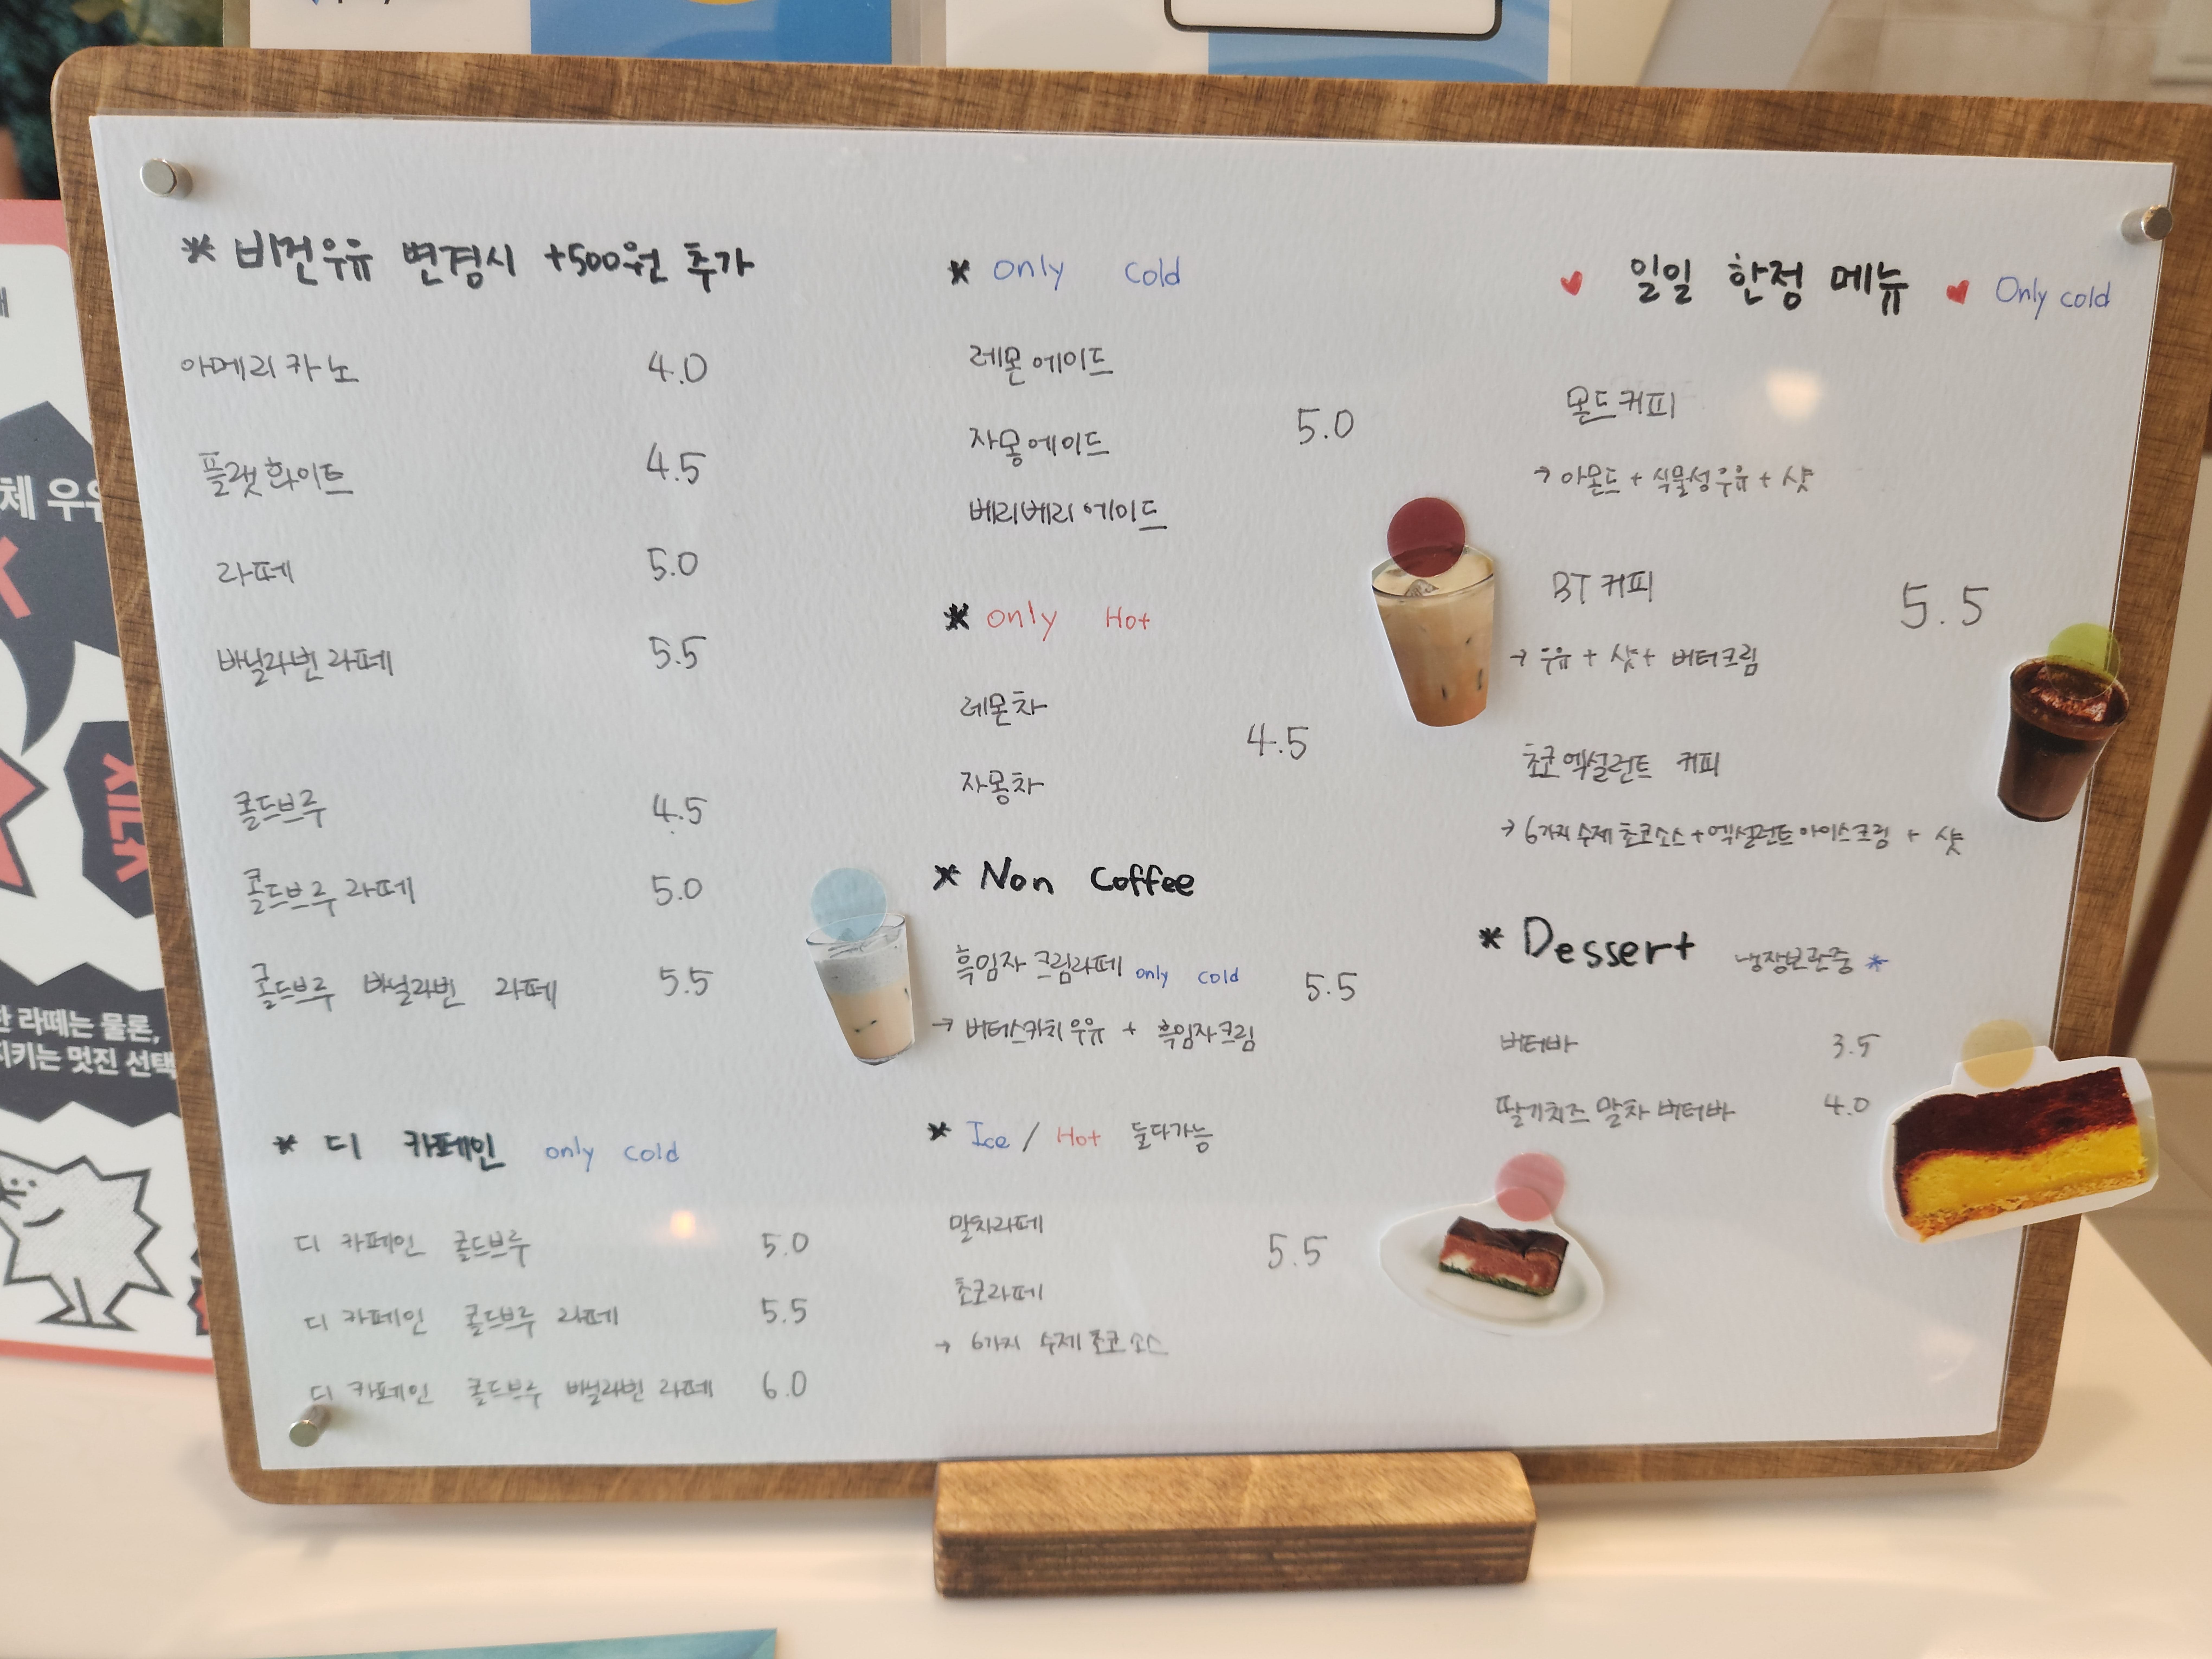 * 비건우유 변경시 +500원 추가
아메리카노 4.0
플랫화이트 4.5
라떼 5.0
바닐라빈 라떼 5.5
콜드브루 4.5
콜드브루 라떼 5.0
콜드브루 바닐라빈 라떼 5.5
* 디 카페인 only cold
디 카페인 콜드브루 5.0
디 카페인 콜드브루 라떼 5.5
디 카페인 콜드브루 바닐라빈 라떼 6.0
* only cold
레몬에이드
자몽에이드 5.0
베리베리에이드
* only Hot
레몬차
4.5
자몽차
* Non Coffee
흑임자 크림라떼 only cold 5.5
→ 버터스카치우유 + 흑임자크림
* Ice / Hot 둘다가능
말차라떼
5.5
초코라떼
→ 6가지 수제 초코소스
♥ 일일 한정 메뉴 ♥ Only cold
몬드커피
→ 아몬드 + 식물성우유 + 샷
BT 커피
5.5
→ 우유 + 샷 + 버터크림
초코엑설런트 커피
→ 6가지 수제 초코소스 + 엑설런트 아이스크림 + 샷
* Dessert 냉장보관중 *
버터바 3.5
딸기치즈 말차 버터바 4.0
체 우유
한 라떼는 물론,
지키는 멋진 선택